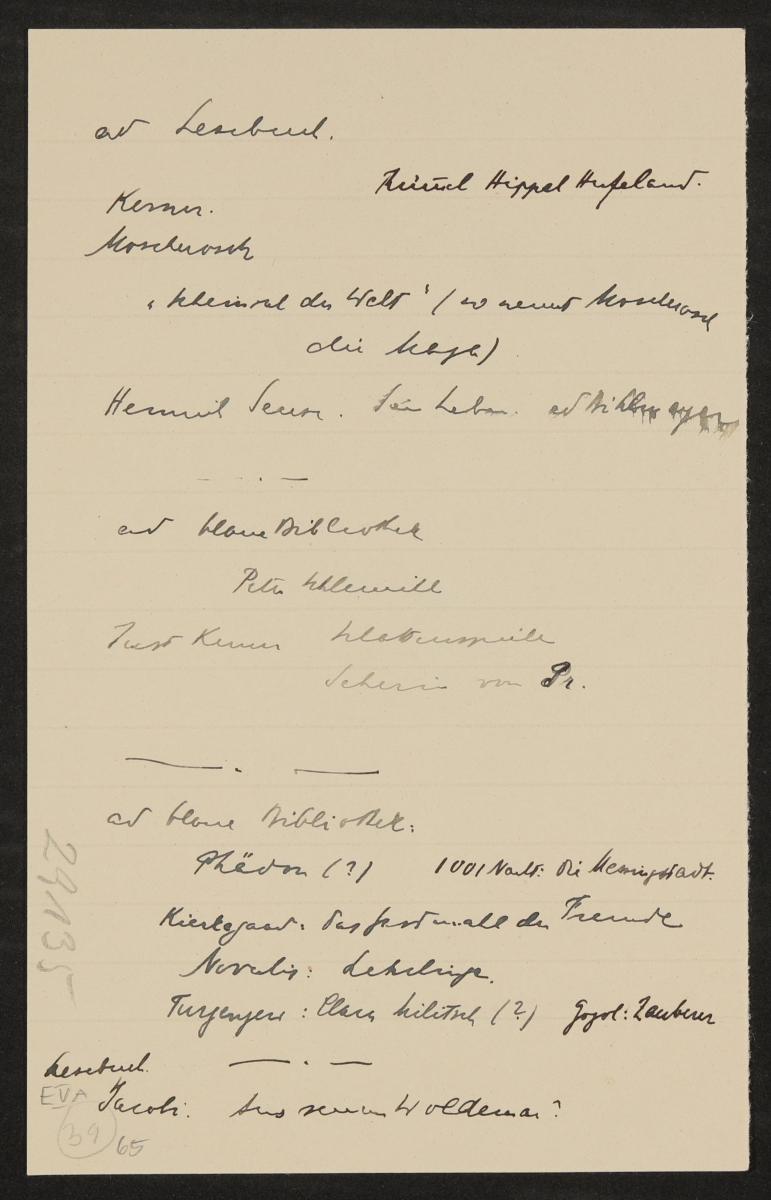 ad Lesebuch.
Hippel Hufeland.
Kerner.
Moscherosch
„Scheinsal der Welt" (so nennt Moscherosch
die Magd)
Heinrich Seuse. Sein Leben. ad
ad blaue Bibliothek
Peter Schlemihl
Just. Kerner Schattenspiele
Seherin von Pr.
ad blaue Bibliothek:
Phädon (?) 1001 Nacht: Die Messingstadt.
Kierkegaard: Das Festmahl der Freunde
Novalis: Lehrlinge.
Turgenjew: Clara Militsch (?) Gogol: Zauberer
Lesebuch.
Jacobi. Aus seinem Woldemar?
29135
EVA
39
65